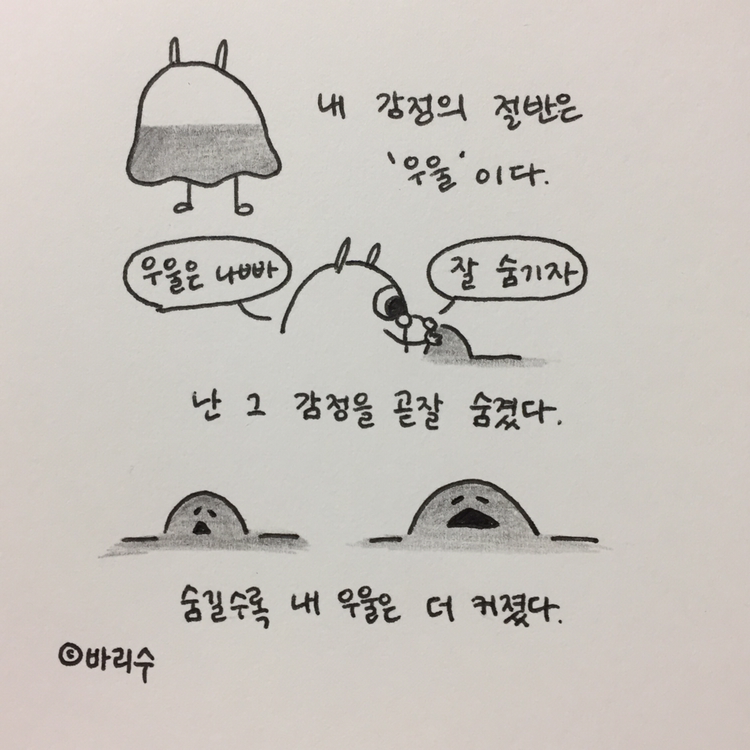 내 감정의 절반은
'우울'이다.
우울은 나빠
잘 숨기자
난 그 감정을 곧잘 숨겼다.
숨길수록 내 우울은 더 커졌다.
©바리수